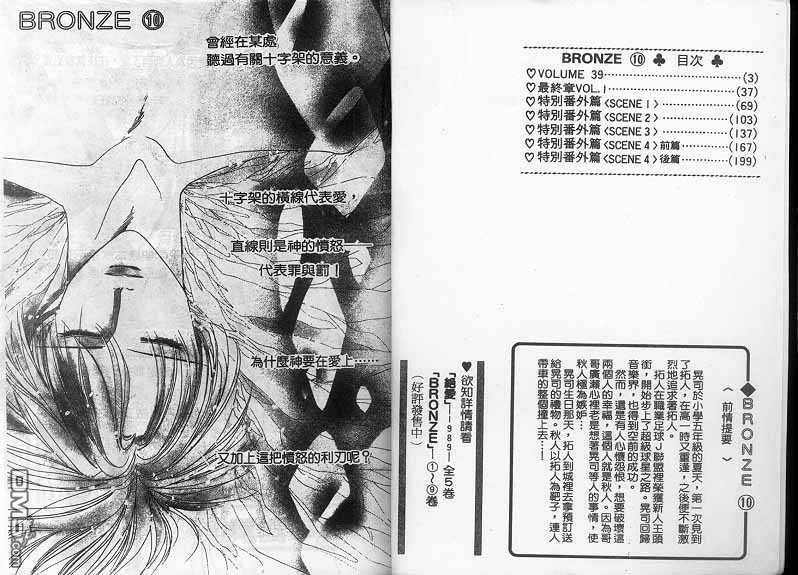 BRONZE ⑩
曾經在某處
聽過有關十字架的意義。
十字架的橫線代表愛，
直線則是神的憤怒——
代表罪與罰！
為什麼神要在愛上……
又加上這把憤怒的利刃呢？
BRONZE ⑩ ♣ 目次 ♣
♡VOLUME 39……(3)
♡最終章VOL.1……(37)
♡特別番外篇〈SCENE 1〉……(69)
♡特別番外篇〈SCENE 2〉……(103)
♡特別番外篇〈SCENE 3〉……(137)
♡特別番外篇〈SCENE 4〉前篇……(167)
♡特別番外篇〈SCENE 4〉後篇……(199)
◆BRONZE ⑩
〈前情提要〉
晃司於小學五年級的夏天，第一次見到
了拓人，在高一時又重逢，之後便不斷激
烈地追求著拓人。
拓人在職業足球J聯盟裡榮獲新人王頭
銜，開始步上了超級球星之路。晃司回歸
音樂界，也得到空前的成功。
然而，還是有人心懷怨恨，想要破壞這
兩個人的幸福，這個人就是秋人。因為哥
哥廣瀨心裡老是想著晃司等人的事情，使
秋人極為嫉妒…
晃司生日那天，拓人到城裡去拿預訂送
給晃司的禮物。秋人以拓人為靶子，連人
帶車的整個撞上去……
♥欲知詳情請看
「絕愛」—1989—全5卷
「BRONZE」①～⑨卷
（好評發售中）
DM5.com